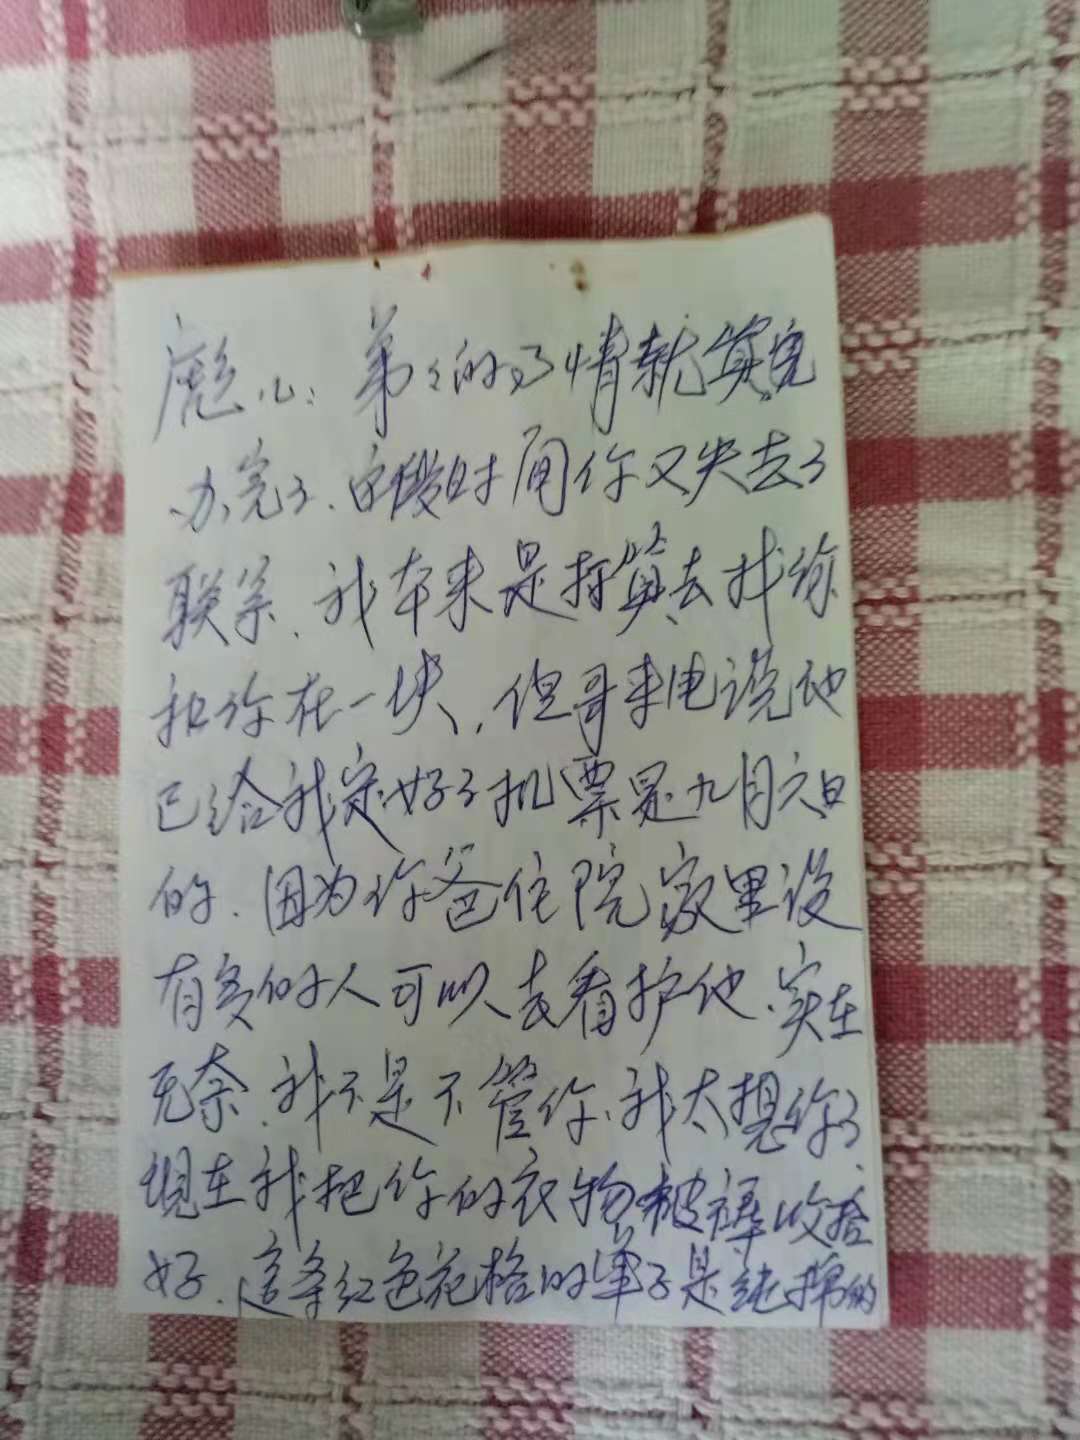 彪儿：弟々的事情就算完
办完了、这段时间你又失去了
联系、我本来是打算去找你
和你在一块，但哥来电说他
已给我定好了机票是九月六日
的、因为你爸住院家里没
有多的人可以去看护他、实在
无奈、我不是不管你、我太想你了
现在我把你的衣物被褥收拾
好、这条红色花格的单子是纯棉的